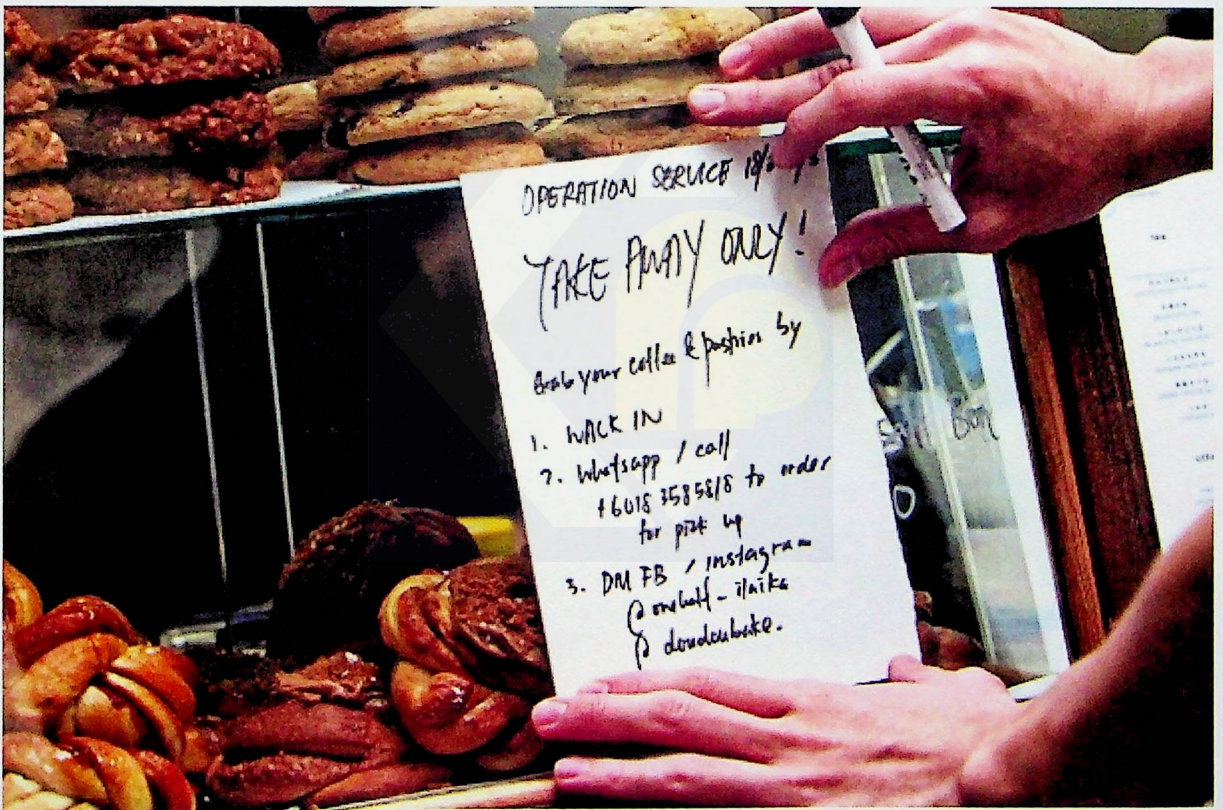 OPERATION SERVICE 18/
TAKE AWAY ONLY!
Grab your coffee & pastries by
1. WALK IN
2. Whatsapp / call
+6018 3585818 to order
for pick up
3. DM FB / instagram
@onehalf_
@doudoubake.